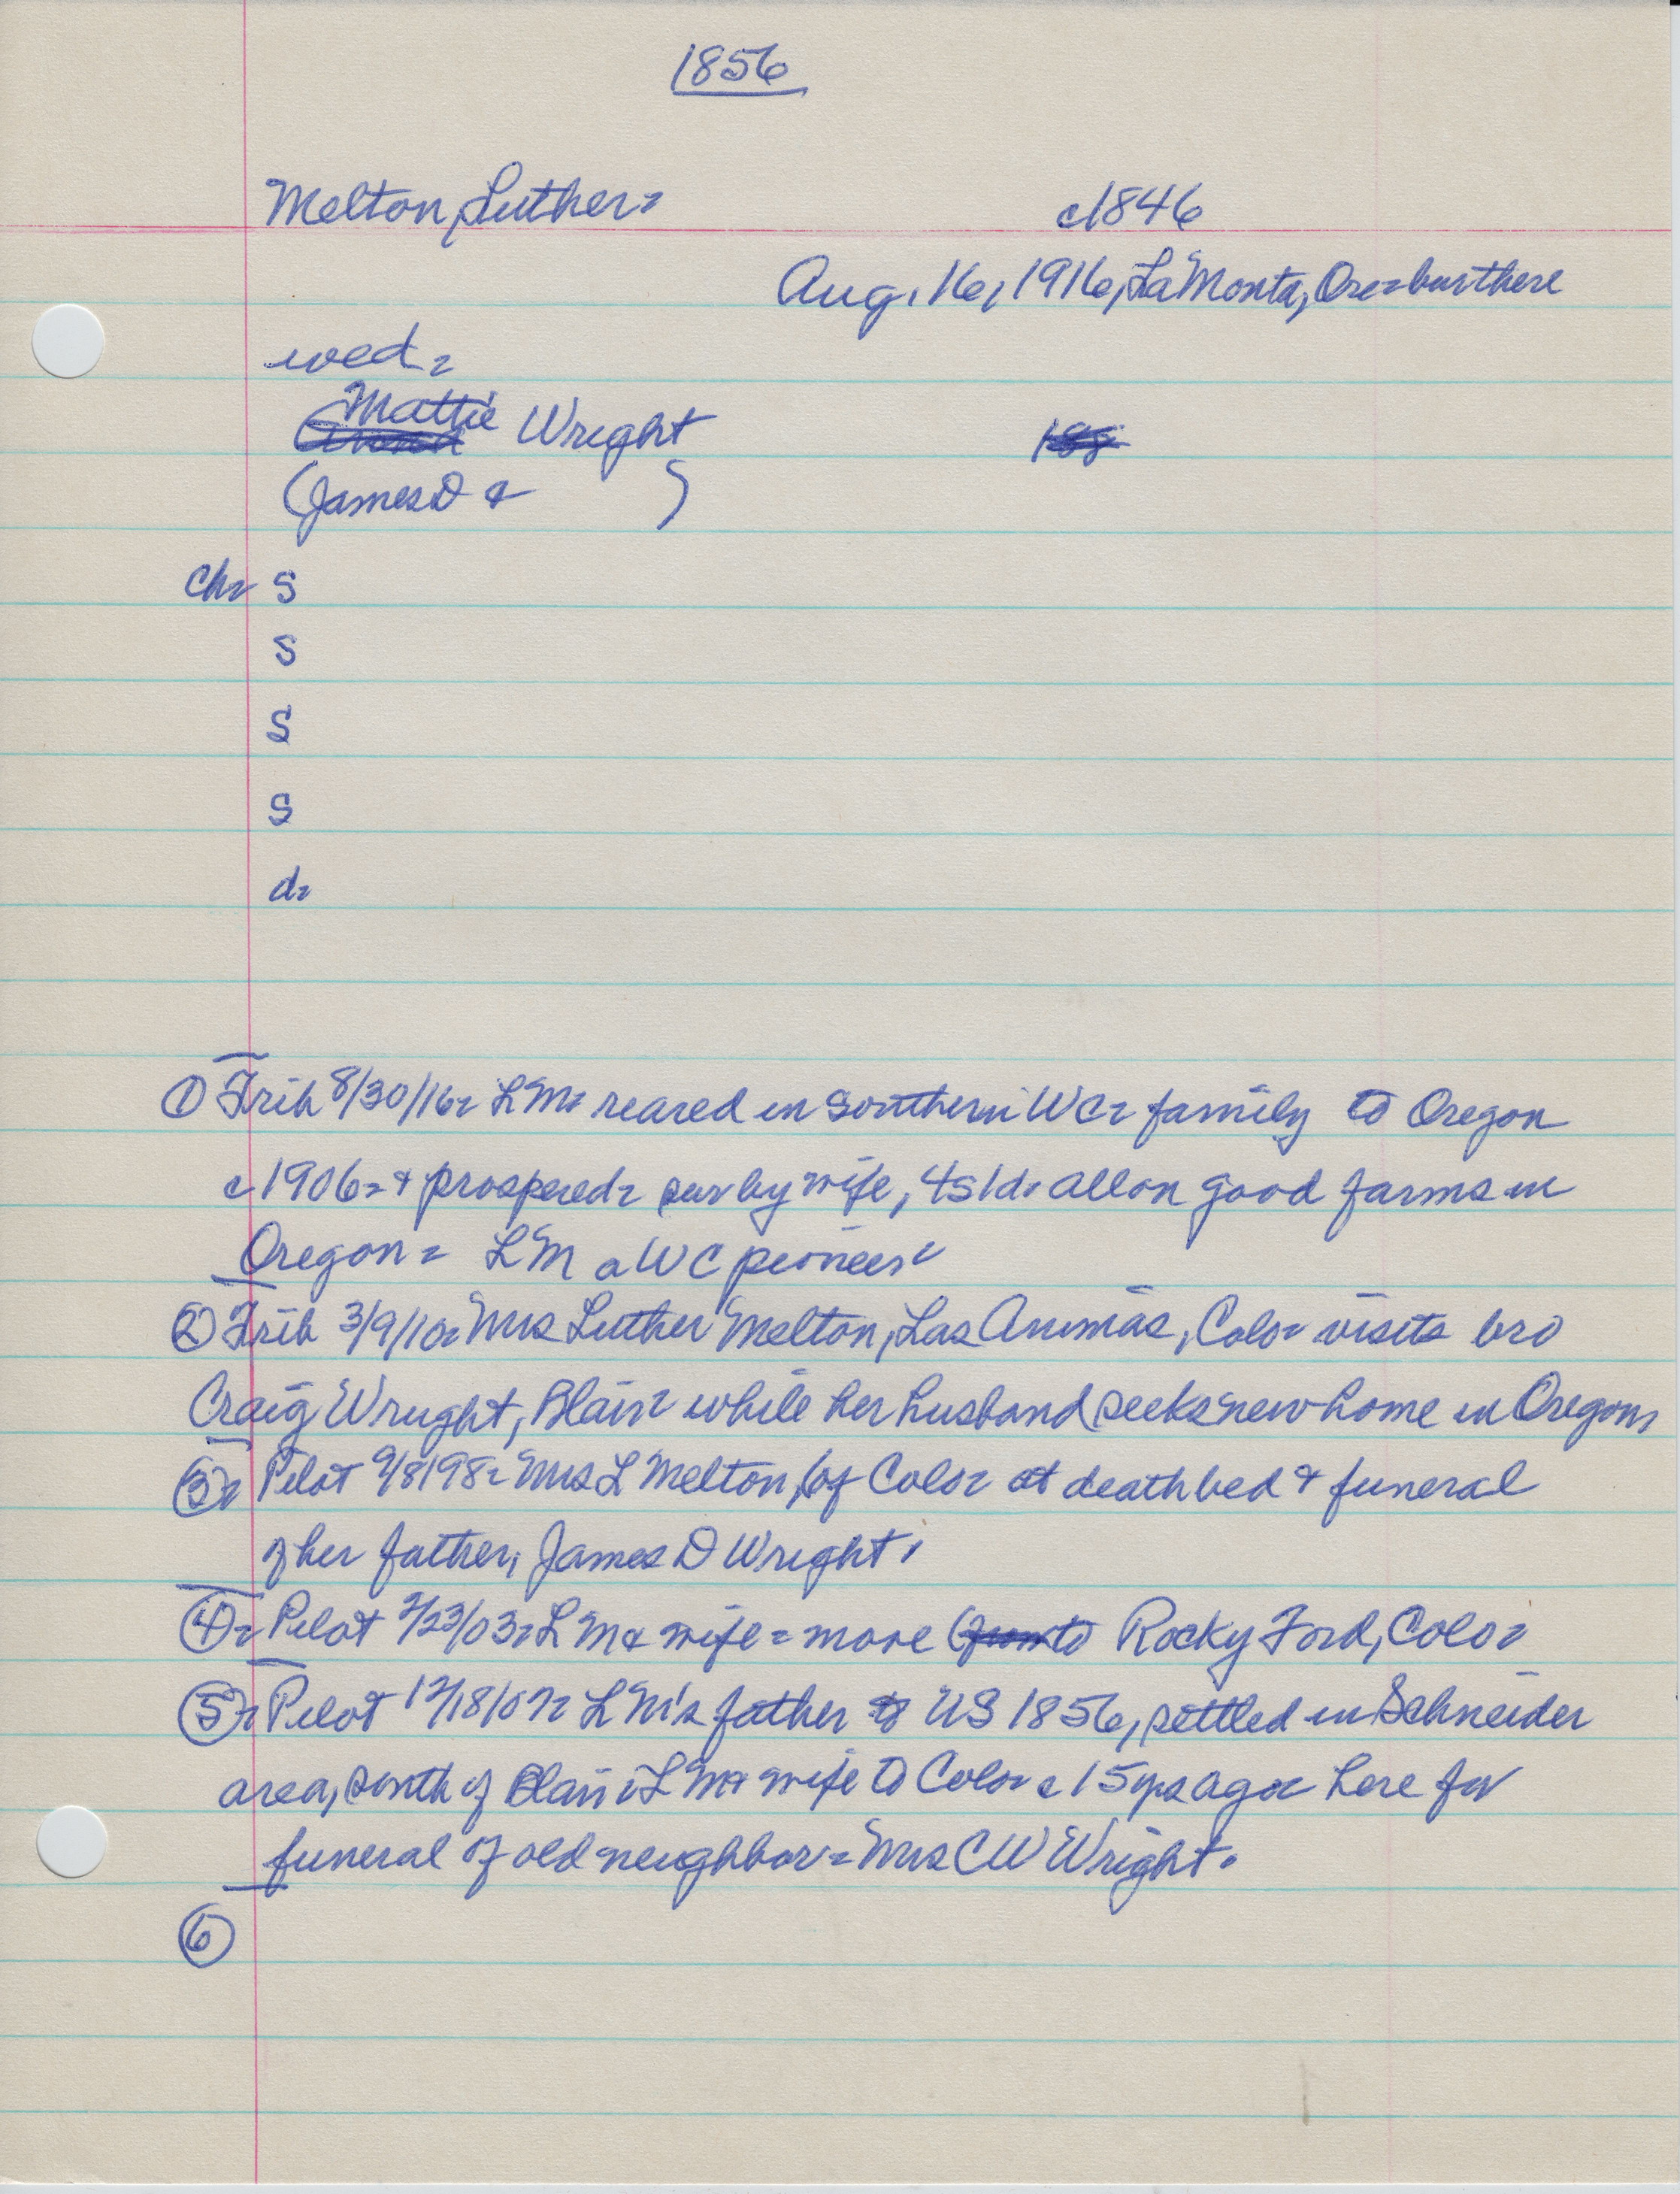 1856
Melton, Luther= c1846
Aug. 16, 1916, LaMonta, Ore=bur there
wed=
Mattie Wright
(James D & )
Ch= S
S
S
S
d=
① Trib 8/30/16= LM= reared in southern WC= family to Oregon
c1906=+ prospered= sur by wife, 4s 1d. all on good farms in
Oregon= LM a WC pioneer
② Trib 3/9/10= Mrs Luther Melton, Las Animas, Colo= visits bro
Craig Wright, Blair= while her husband seeks new home in Oregon,
③= Pilot 9/8/98= Mrs L Melton, of Colo= at deathbed & funeral
of her father, James D Wright.
④= Pilot 2/23/03= LM & wife = move to Rocky Ford, Colo=
⑤= Pilot 12/18/07= LM's father to US 1856, settled in Schneider
area, south of Blair= LM & wife to Colo= c15yrs ago= here for
funeral of old neighbor= Mrs CW Wright.
⑥